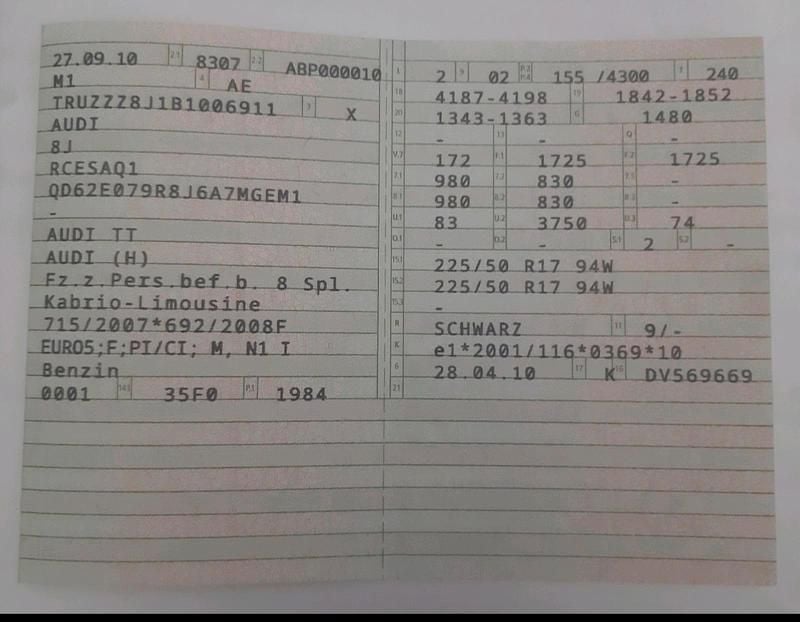 27.09.10 2.1 8307 2.2 ABP000010
M1 4 AE
TRUZZZ8J1B1006911 3 X
AUDI
8J
RCESAQ1
QD62E079R8J6A7MGEM1
-
AUDI TT
AUDI (H)
Fz.z.Pers.bef.b. 8 Spl.
Kabrio-Limousine
715/2007*692/2008F
EURO5;F;PI/CI; M, N1 I
Benzin
0001 14.1 35F0 P.1 1984
L 2 9 02 P.2 P.4 155 /4300 T 240
18 4187-4198 19 1842-1852
20 1343-1363 G 1480
12 - 13 - Q -
V.7 172 F.1 1725 F.2 1725
7.1 980 7.2 830 7.3 -
8.1 980 8.2 830 8.3 -
U.1 83 U.2 3750 U.3 74
O.1 - O.2 - S.1 2 S.2 -
15.1 225/50 R17 94W
15.2 225/50 R17 94W
15.3 -
R SCHWARZ 11 9/-
K e1*2001/116*0369*10
6 28.04.10 17 K 16 DV569669
21